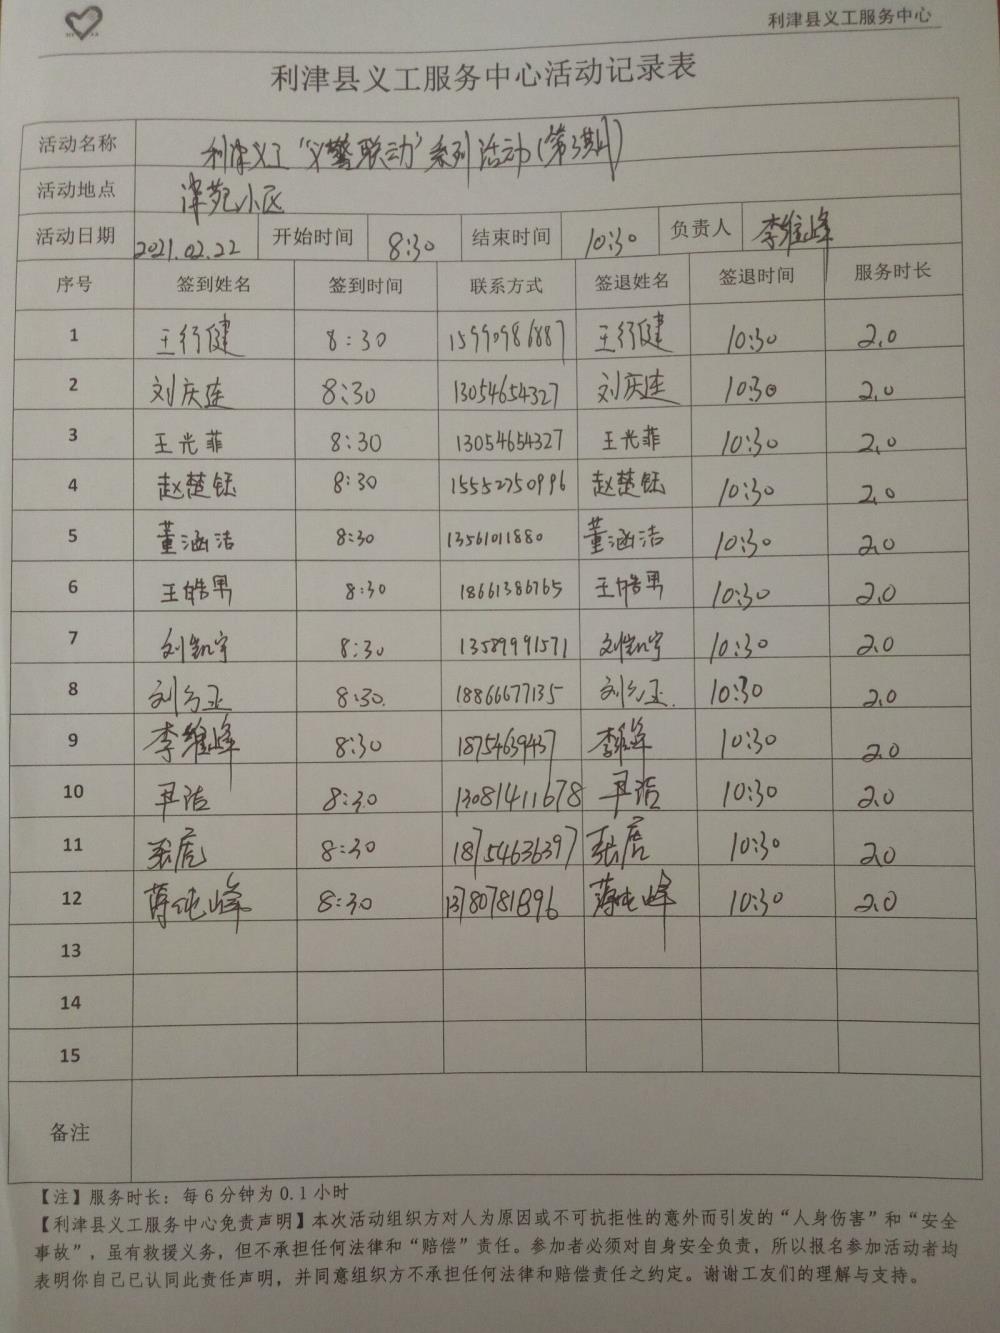 利津县义工服务中心
利津县义工服务中心活动记录表
活动名称 利津义工“义警联动”系列活动(第3期)
活动地点 津苑小区
活动日期 2021.02.22 开始时间 8:30 结束时间 10:30 负责人 李维峰
序号 签到姓名 签到时间 联系方式 签退姓名 签退时间 服务时长
1 王行健 8:30 15990986887 王行健 10:30 2.0
2 刘庆连 8:30 13054654327 刘庆连 10:30 2.0
3 王光菲 8:30 13054654327 王光菲 10:30 2.0
4 赵楚钰 8:30 15552750996 赵楚钰 10:30 2.0
5 董涵洁 8:30 13561011880 董涵洁 10:30 2.0
6 王皓男 8:30 18661386765 王皓男 10:30 2.0
7 刘凯宇 8:30 13589991571 刘凯宇 10:30 2.0
8 刘 8:30. 18866677135 刘 10:30 2.0
9 李维峰 8:30 18754639437 李维峰 10:30 2.0
10 8:30 13081411678 10:30 2.0
11 张 8:30 18754636397 张 10:30 2.0
12 薄纯峰 8:30 13780781896 薄纯峰 10:30 2.0
13
14
15
备注
【注】服务时长：每6分钟为0.1小时
【利津县义工服务中心免责声明】本次活动组织方对人为原因或不可抗拒性的意外而引发的“人身伤害”和“安全
事故”，虽有救援义务，但不承担任何法律和“赔偿”责任。参加者必须对自身安全负责，所以报名参加活动者均
表明你自己已认同此责任声明，并同意组织方不承担任何法律和赔偿责任之约定。谢谢工友们的理解与支持。